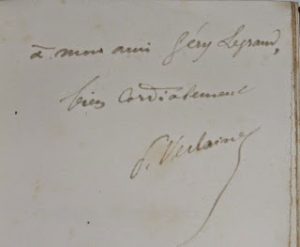 à mon ami Géry Legrand,
bien cordialement
P. Verlaine